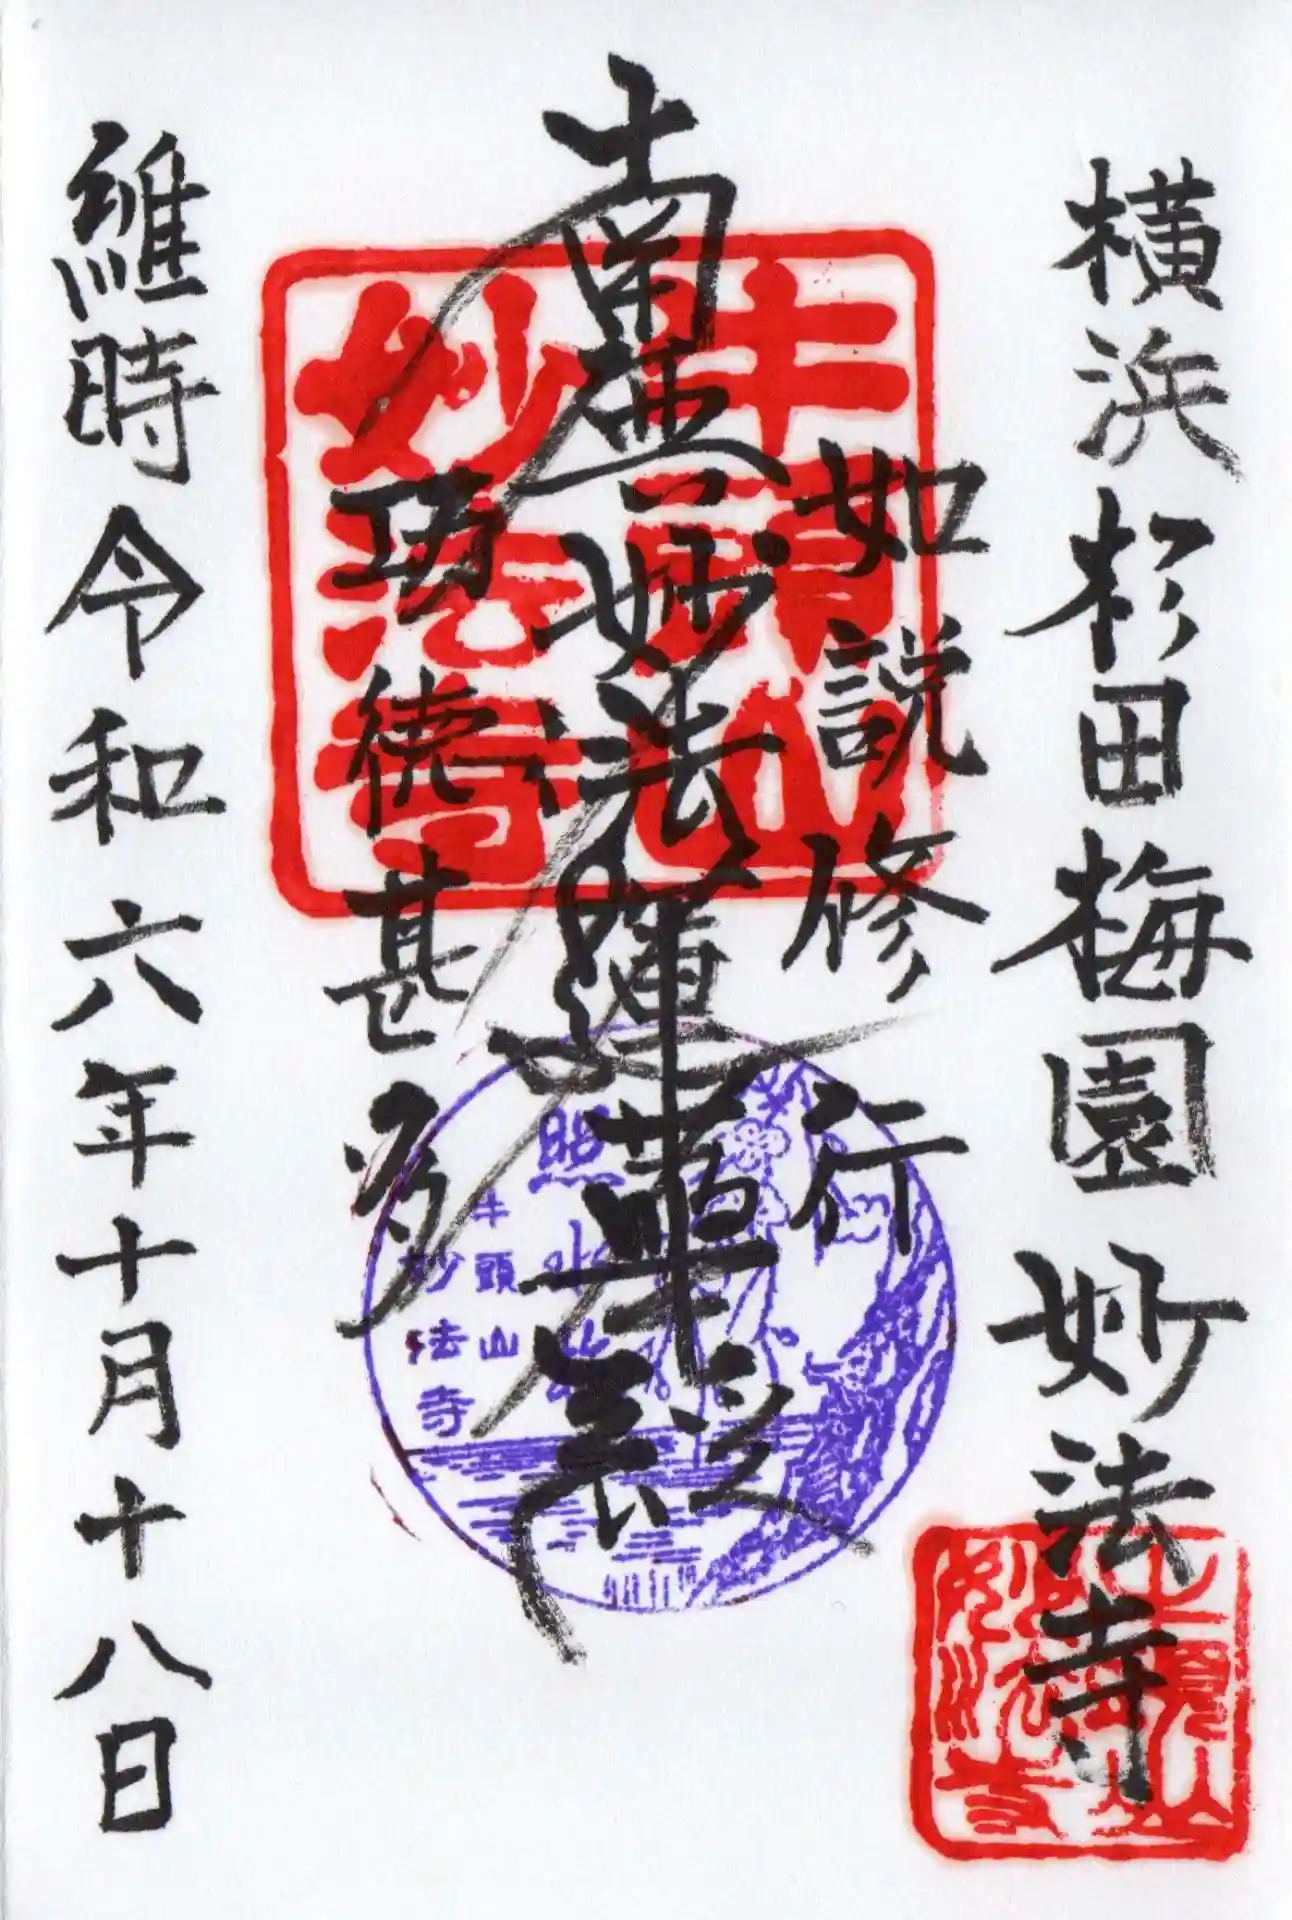 横浜杉田梅園妙法寺
如説修行
南無妙法蓮華経
功徳甚多
維時令和六年十月十八日
牛頭山
妙法寺
照水梅
牛頭山
妙法寺